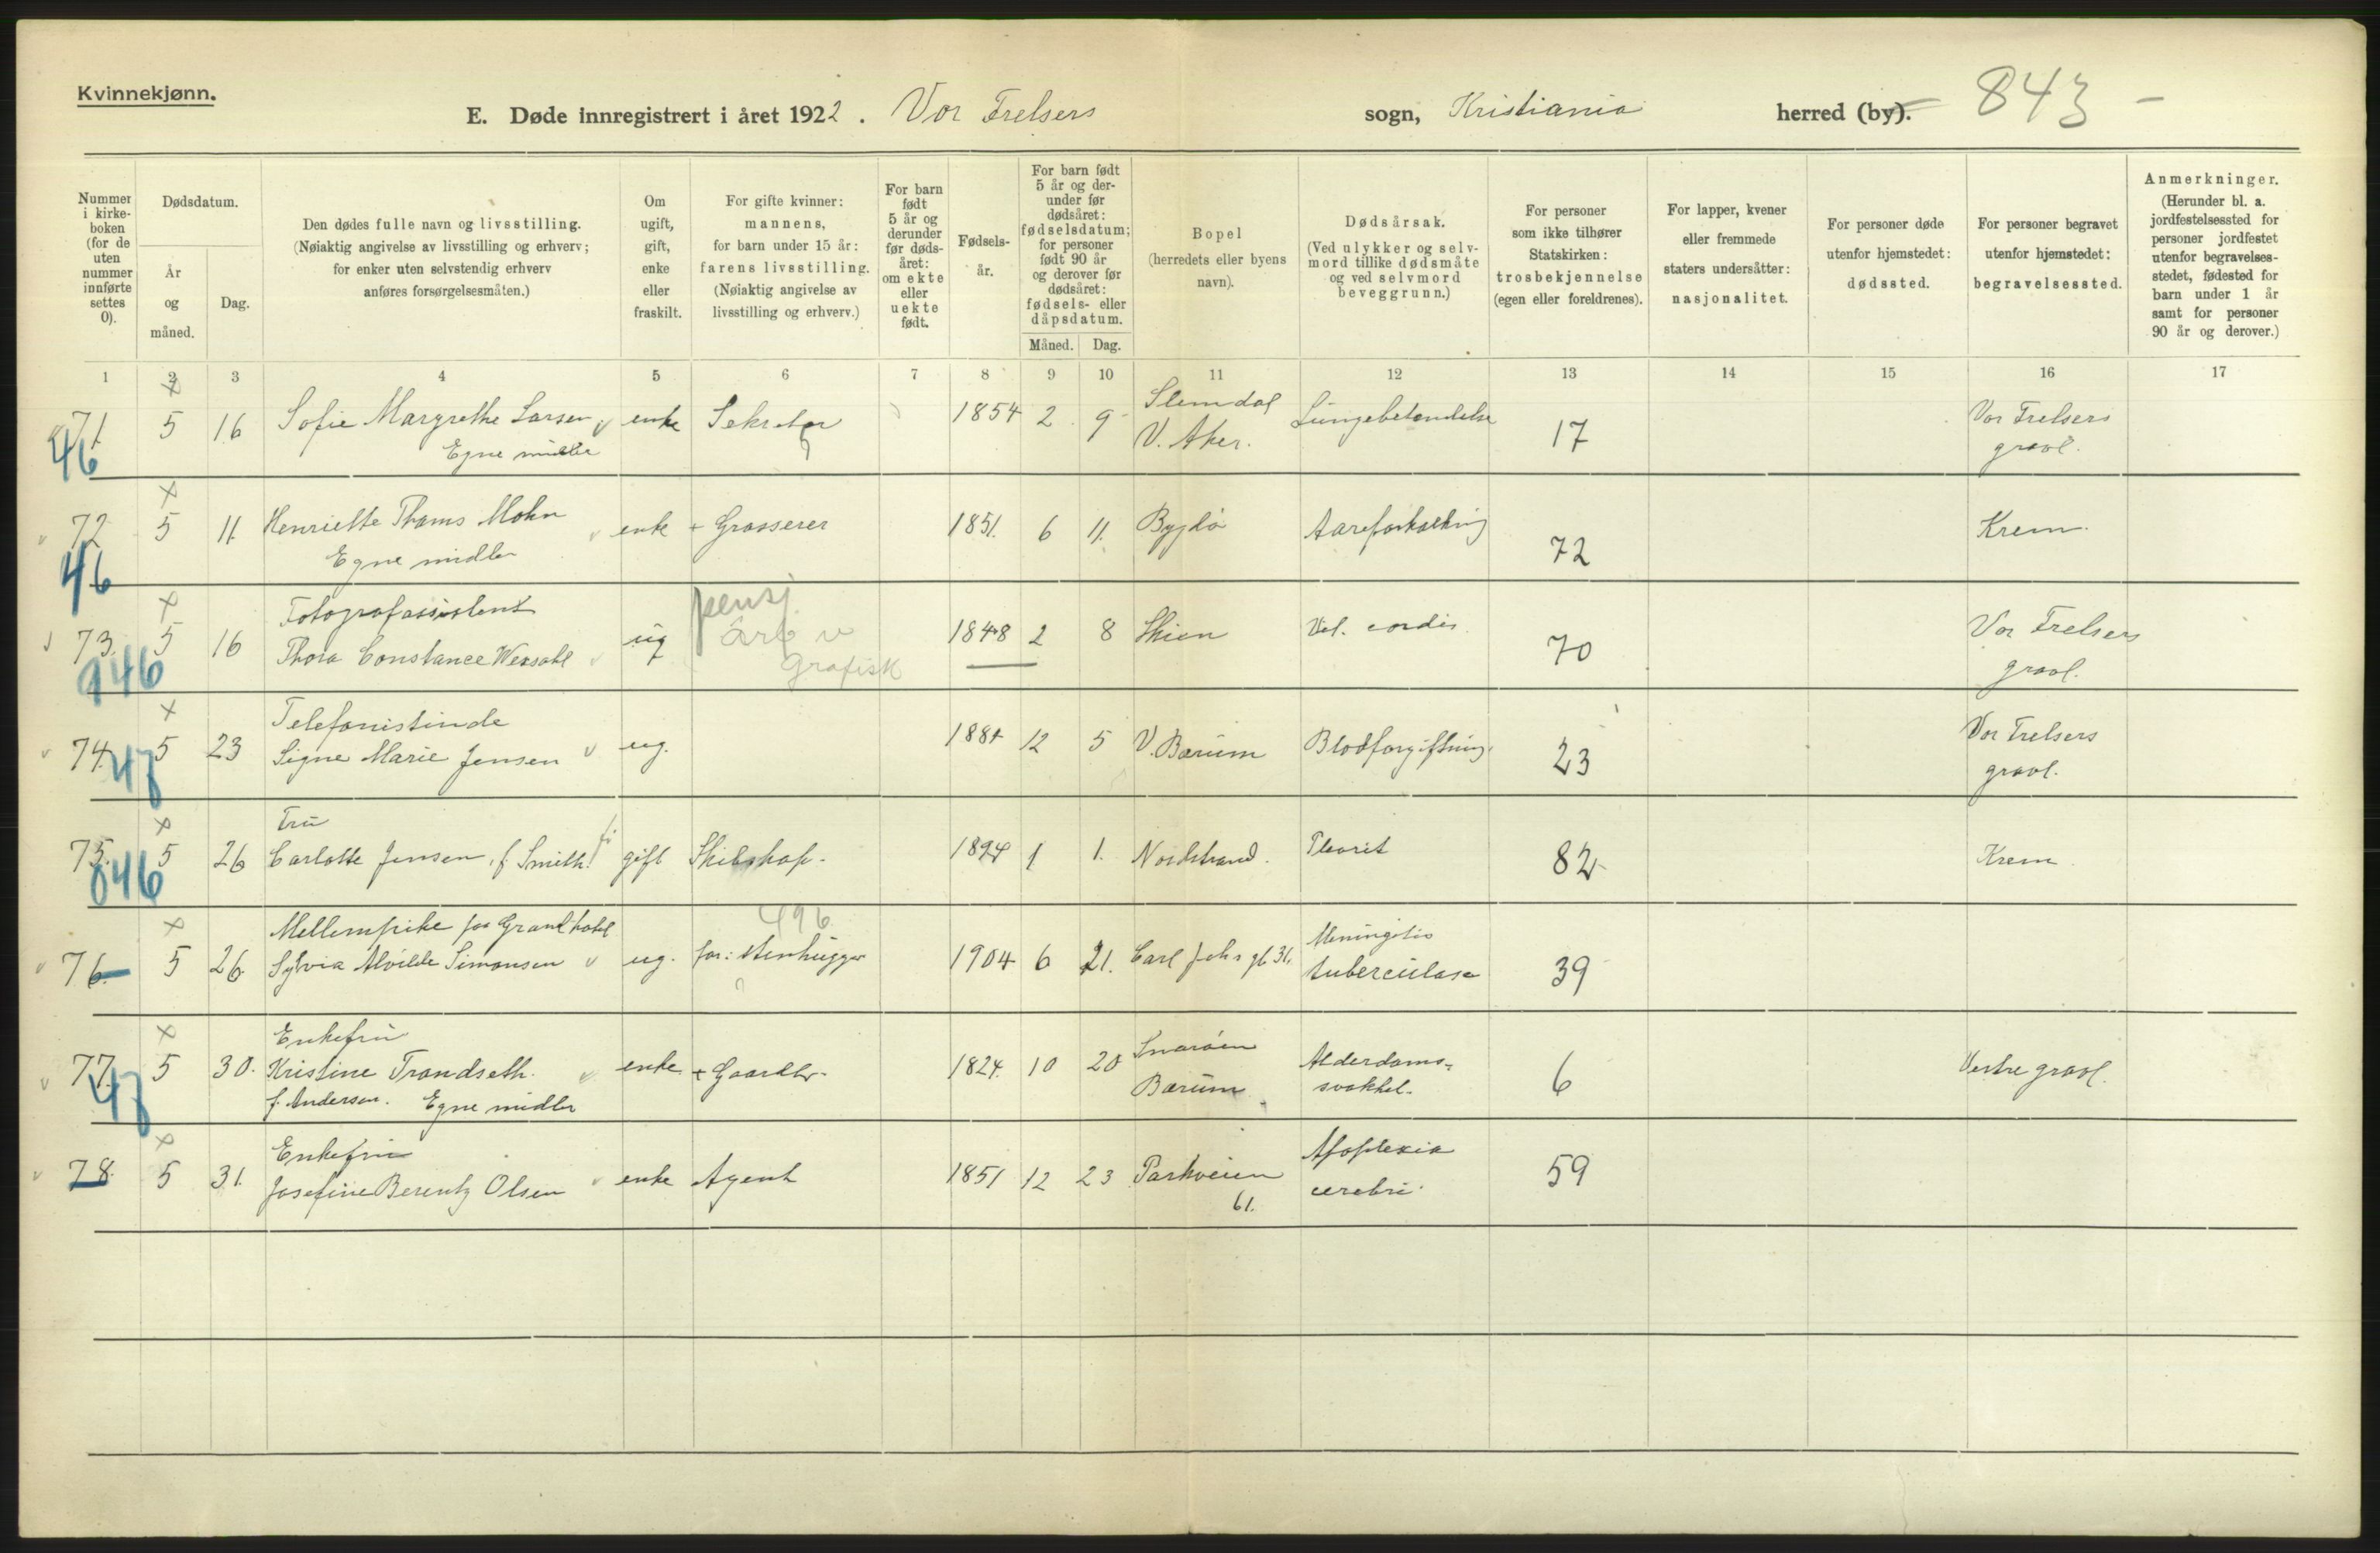 Kvinnekjønn.
E. Døde innregistrert i året 1922. Vor Frelsers sogn, Kristiania herred (by). 843 –
Nummer i kirke-boken (for de uten nummer innførte settes 0).
Dødsdatum.
År og måned.
Dag.
Den dødes fulle navn og livsstilling.
(Nøiaktig angivelse av livsstilling og erhverv;
for enker uten selvstendig erhverv
anføres forsørgelsesmåten.)
Om
ugift,
gift,
enke
eller
fraskilt.
For gifte kvinner:
mannens,
for barn under 15 år:
farens livsstilling.
(Nøiaktig angivelse av
livsstilling og erhverv.)
For barn
født
5 år og
derunder
før døds-
året:
om ekte
eller
uekte
født.
Fødsels-
år.
For barn født
5 år og der-
under før
dødsåret:
fødselsdatum;
for personer
født 90 år
og derover før
dødsåret:
fødsels- eller
dåpsdatum.
Måned. Dag.
Bopel
(herredets eller byens
navn).
Dødsårsak.
(Ved ulykker og selv-
mord tillike dødsmåte
og ved selvmord
beveggrunn.)
For personer
som ikke tilhører
Statskirken:
trosbekjennelse
(egen eller foreldrenes).
For lapper, kvener
eller fremmede
staters undersåtter:
nasjonalitet.
For personer døde
utenfor hjemstedet:
dødssted.
For personer begravet
utenfor hjemstedet:
begravelsessted.
Anmerkninger.
(Herunder bl. a.
jordfestelsessted for
personer jordfestet
utenfor begravelses-
stedet, fødested for
barn under 1 år
samt for personer
90 år og derover.)
1 2 3 4 5 6 7 8 9 10 11 12 13 14 15 16 17
71. 5 16 Sofie Margrethe Larsen enke Sekretær 1854 2 9 Slemdal Lungebetendelse 17 Vor Frelsers
46 Egne midler V. Aker. gravl.
72 5 11. Henriette Thams Mohn enke + Grosserer 1851. 6 11. Bygdø Aareforkalkning 72 Krem.
46 Egne midler
Fotografassistent pensj.
73. 5 16 Thora Constance Wexsahl ug arb v 1848 2 8 Skien Vit. cordis 70 Vor Frelsers
46 grafisk gravl.
Telefonistinde
74. 5 23 Signe Marie Jensen ug. 1881 12 5 V. Bærum Blodforgiftning. 23 Vor Frelsers
47 gravl.
Fru
75. 5 26 Carlotte Jensen, f. Smith gift Skibskap. 1894 1 1. Nordstrand. Pleurit 82 Krem
846
Mellempike paa Grand hotel 496
76 5 26. Sylvia Alvilde Simonsen ug. far: Stenhugger 1904 6 21. Carl Johs gt. 31. Meningitis 39
tuberculosa
Enkefru
77. 5 30. Kristine Trondseth. enke + Gaardbr. 1824. 10 20 Snarøen Alderdoms- 6 Vestre gravl.
47 f. Andersen. Egne midler Bærum svakhet.
Enkefru
78. 5 31. Josefine Berentz Olsen enke Agent 1851 12 23 Parkveien Apoplexia 59
61. cerebri